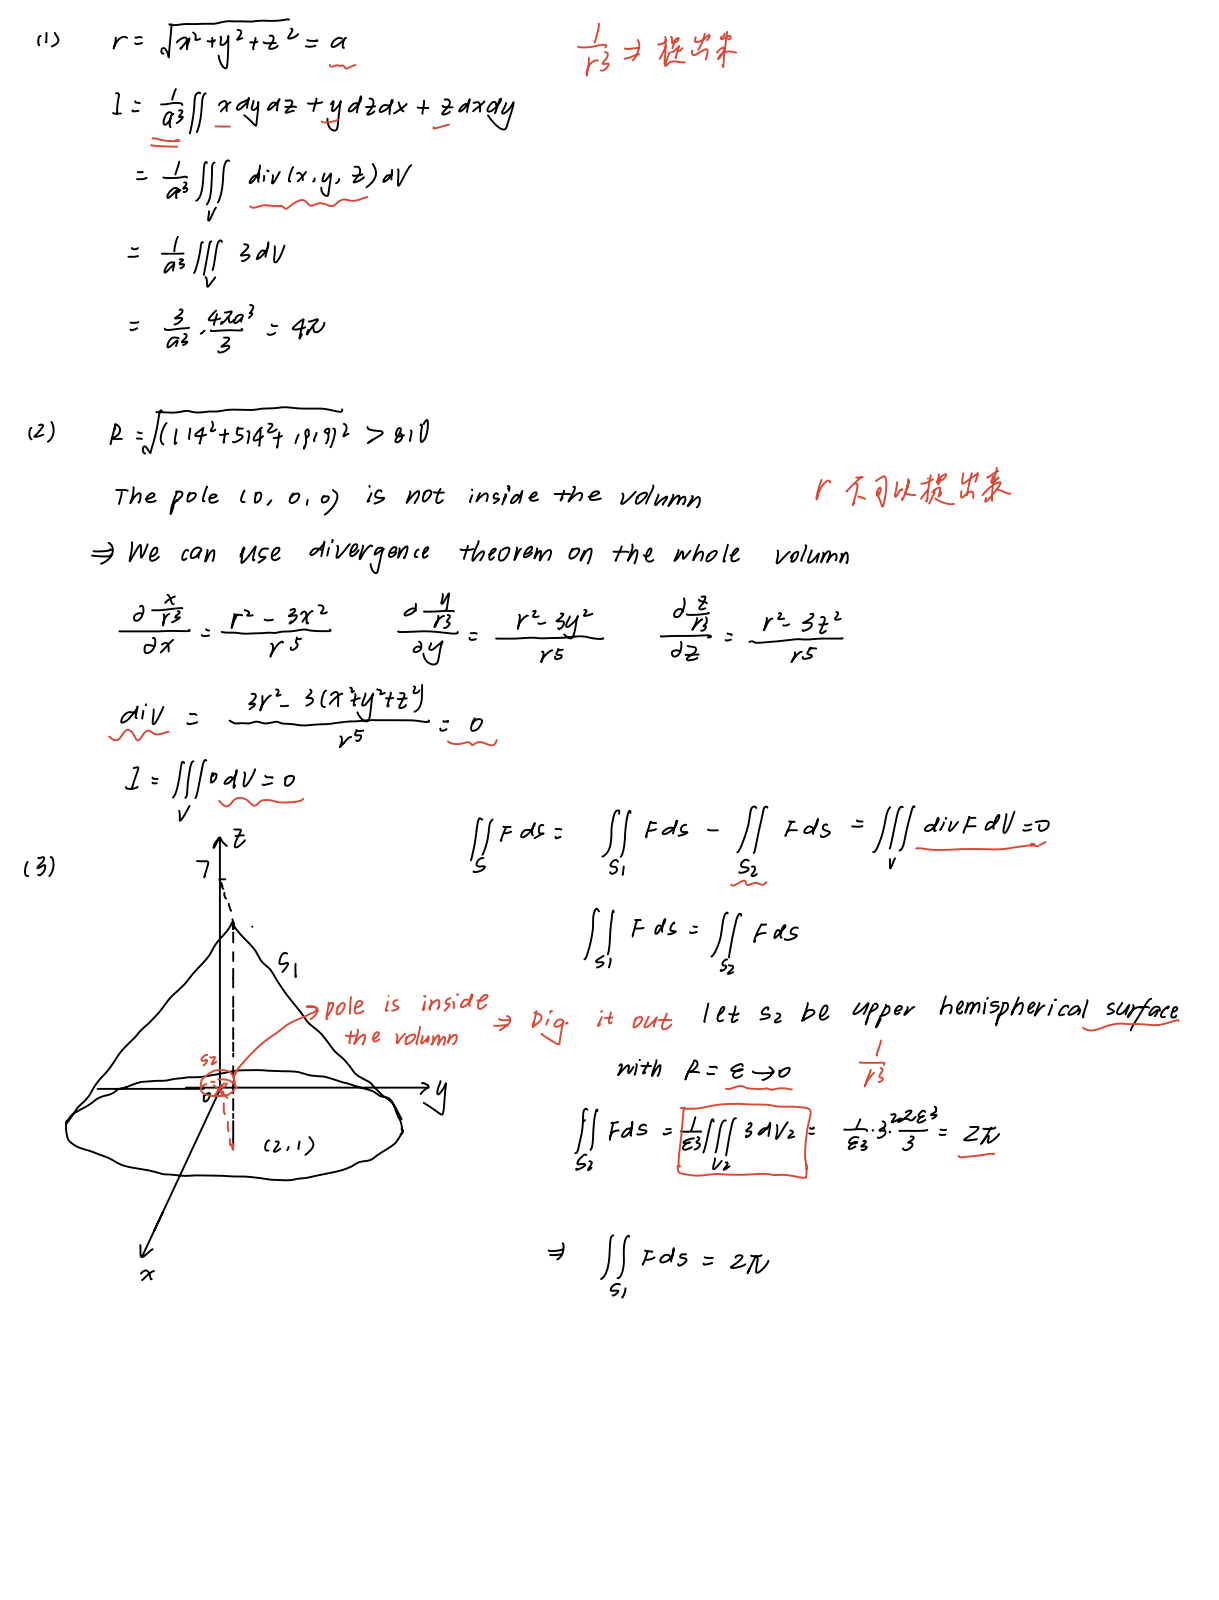 (1) r = √(x²+y²+z²) = a
1/r³ ⇒ 提出来
I = 1/a³ ∬ x dy dz + y dz dx + z dx dy
= 1/a³ ∭_V div(x, y, z) dV
= 1/a³ ∭_V 3 dV
= 3/a³ · 4πa³/3 = 4π
(2) R = √(114²+514²+1919)² > 810
The pole (0, 0, 0) is not inside the volumn
r 不可以提出来
⇒ We can use divergence theorem on the whole volumn
∂ x/r³ / ∂x = (r² - 3x²)/r⁵   ∂ y/r³ / ∂y = (r² - 3y²)/r⁵   ∂ z/r³ / ∂z = (r² - 3z²)/r⁵
div = (3r² - 3(x²+y²+z²))/r⁵ = 0
I = ∭_V 0 dV = 0
(3)
z
7
S1
pole is inside
the volumn
S2
0
y
(2,1)
x
∬_S F ds = ∬_S1 F ds - ∬_S2 F ds = ∭_V div F dV = 0
∬_S1 F ds = ∬_S2 F ds
⇒ Dig it out let S2 be upper hemispherical surface
with R = ε → 0
1/r³
∬_S2 F ds = 1/ε³ ∭_V2 3 dV2 = 1/ε³ · 3 · 2πε³/3 = 2π
⇒ ∬_S1 F ds = 2π